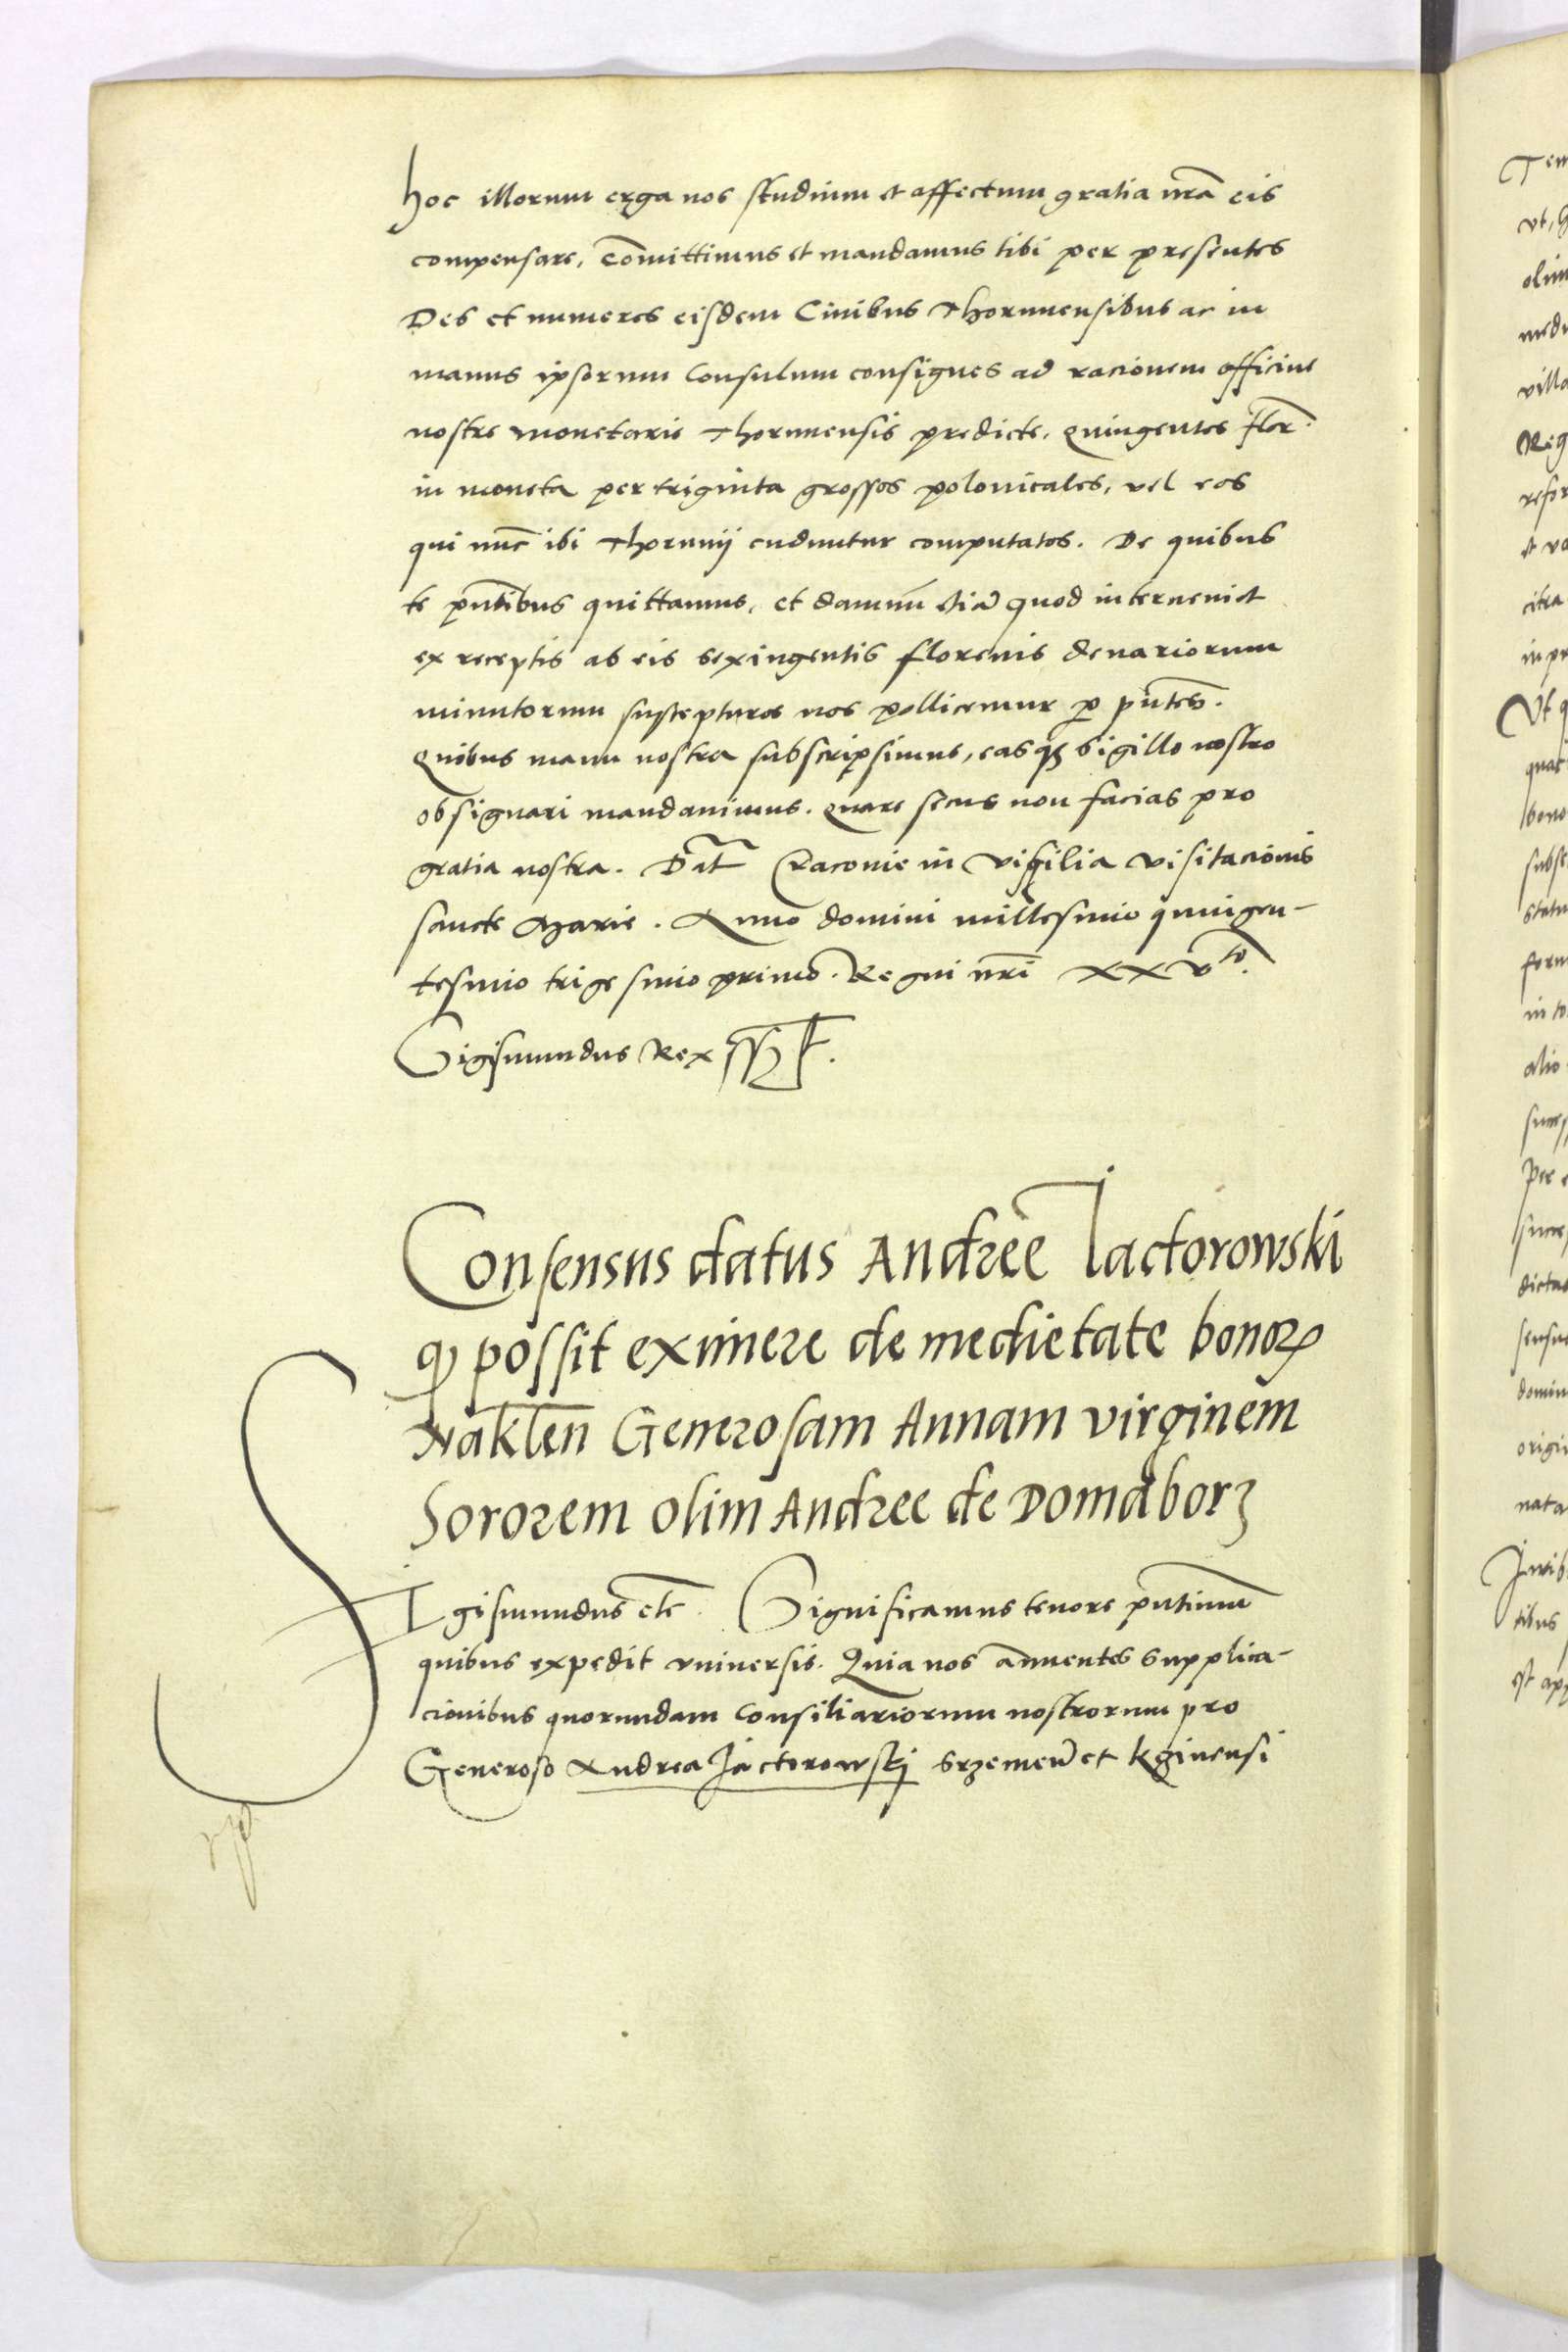 hoc illorum erga nos studium et affectum gratia nrã eis
compensare, Cõmittimus et mandamus tibi per presentes
Des et numeres eisdem Civibus Thorunensibus ac in
manus ipsorum Consulum consignes ad racionem officine
nostre monetarie Thorunensis predicte, quingentos flor̃.
in moneta per triginta grossos polonicales, vel eos
qui nũc ibi Thorunij cuduntur computatos. De quibus
te pñtibus quittamus, et damnũ etiã quod intervenict
ex receptis ab eis sexingentis florenis denariorum
minutorum suscepturos nos pollicemur p̱ pñtes.
Quibus manu nostra subscripsimus, easqȝ sigillo nostro
obsignari mandavimus. Quare secus non facias pro
gratia nostra. Dat̃ Cracovie in vigilia visitacionis
sancte Marie. Anno domini millesimo quingen-
tesimo trigesimo primo. Regni nr̃i XXVto.
Sigismundus Rex sst.
Consensus datus Andree Iactorowski
ꝙ possit eximere de medietate bonoꝝ
Naklen̄ Generosam Annam virginem
Sororem olim Andree de Domaborz
SIgismundus etc̃. Significamus tenore pñtium
quibus expedit vniversis. Quia nos annuentes supplica-
cionibus quorundam Consiliariorum nostrorum pro
Generoso Andrea Jactorowskj Srzemeñ et Kginensi